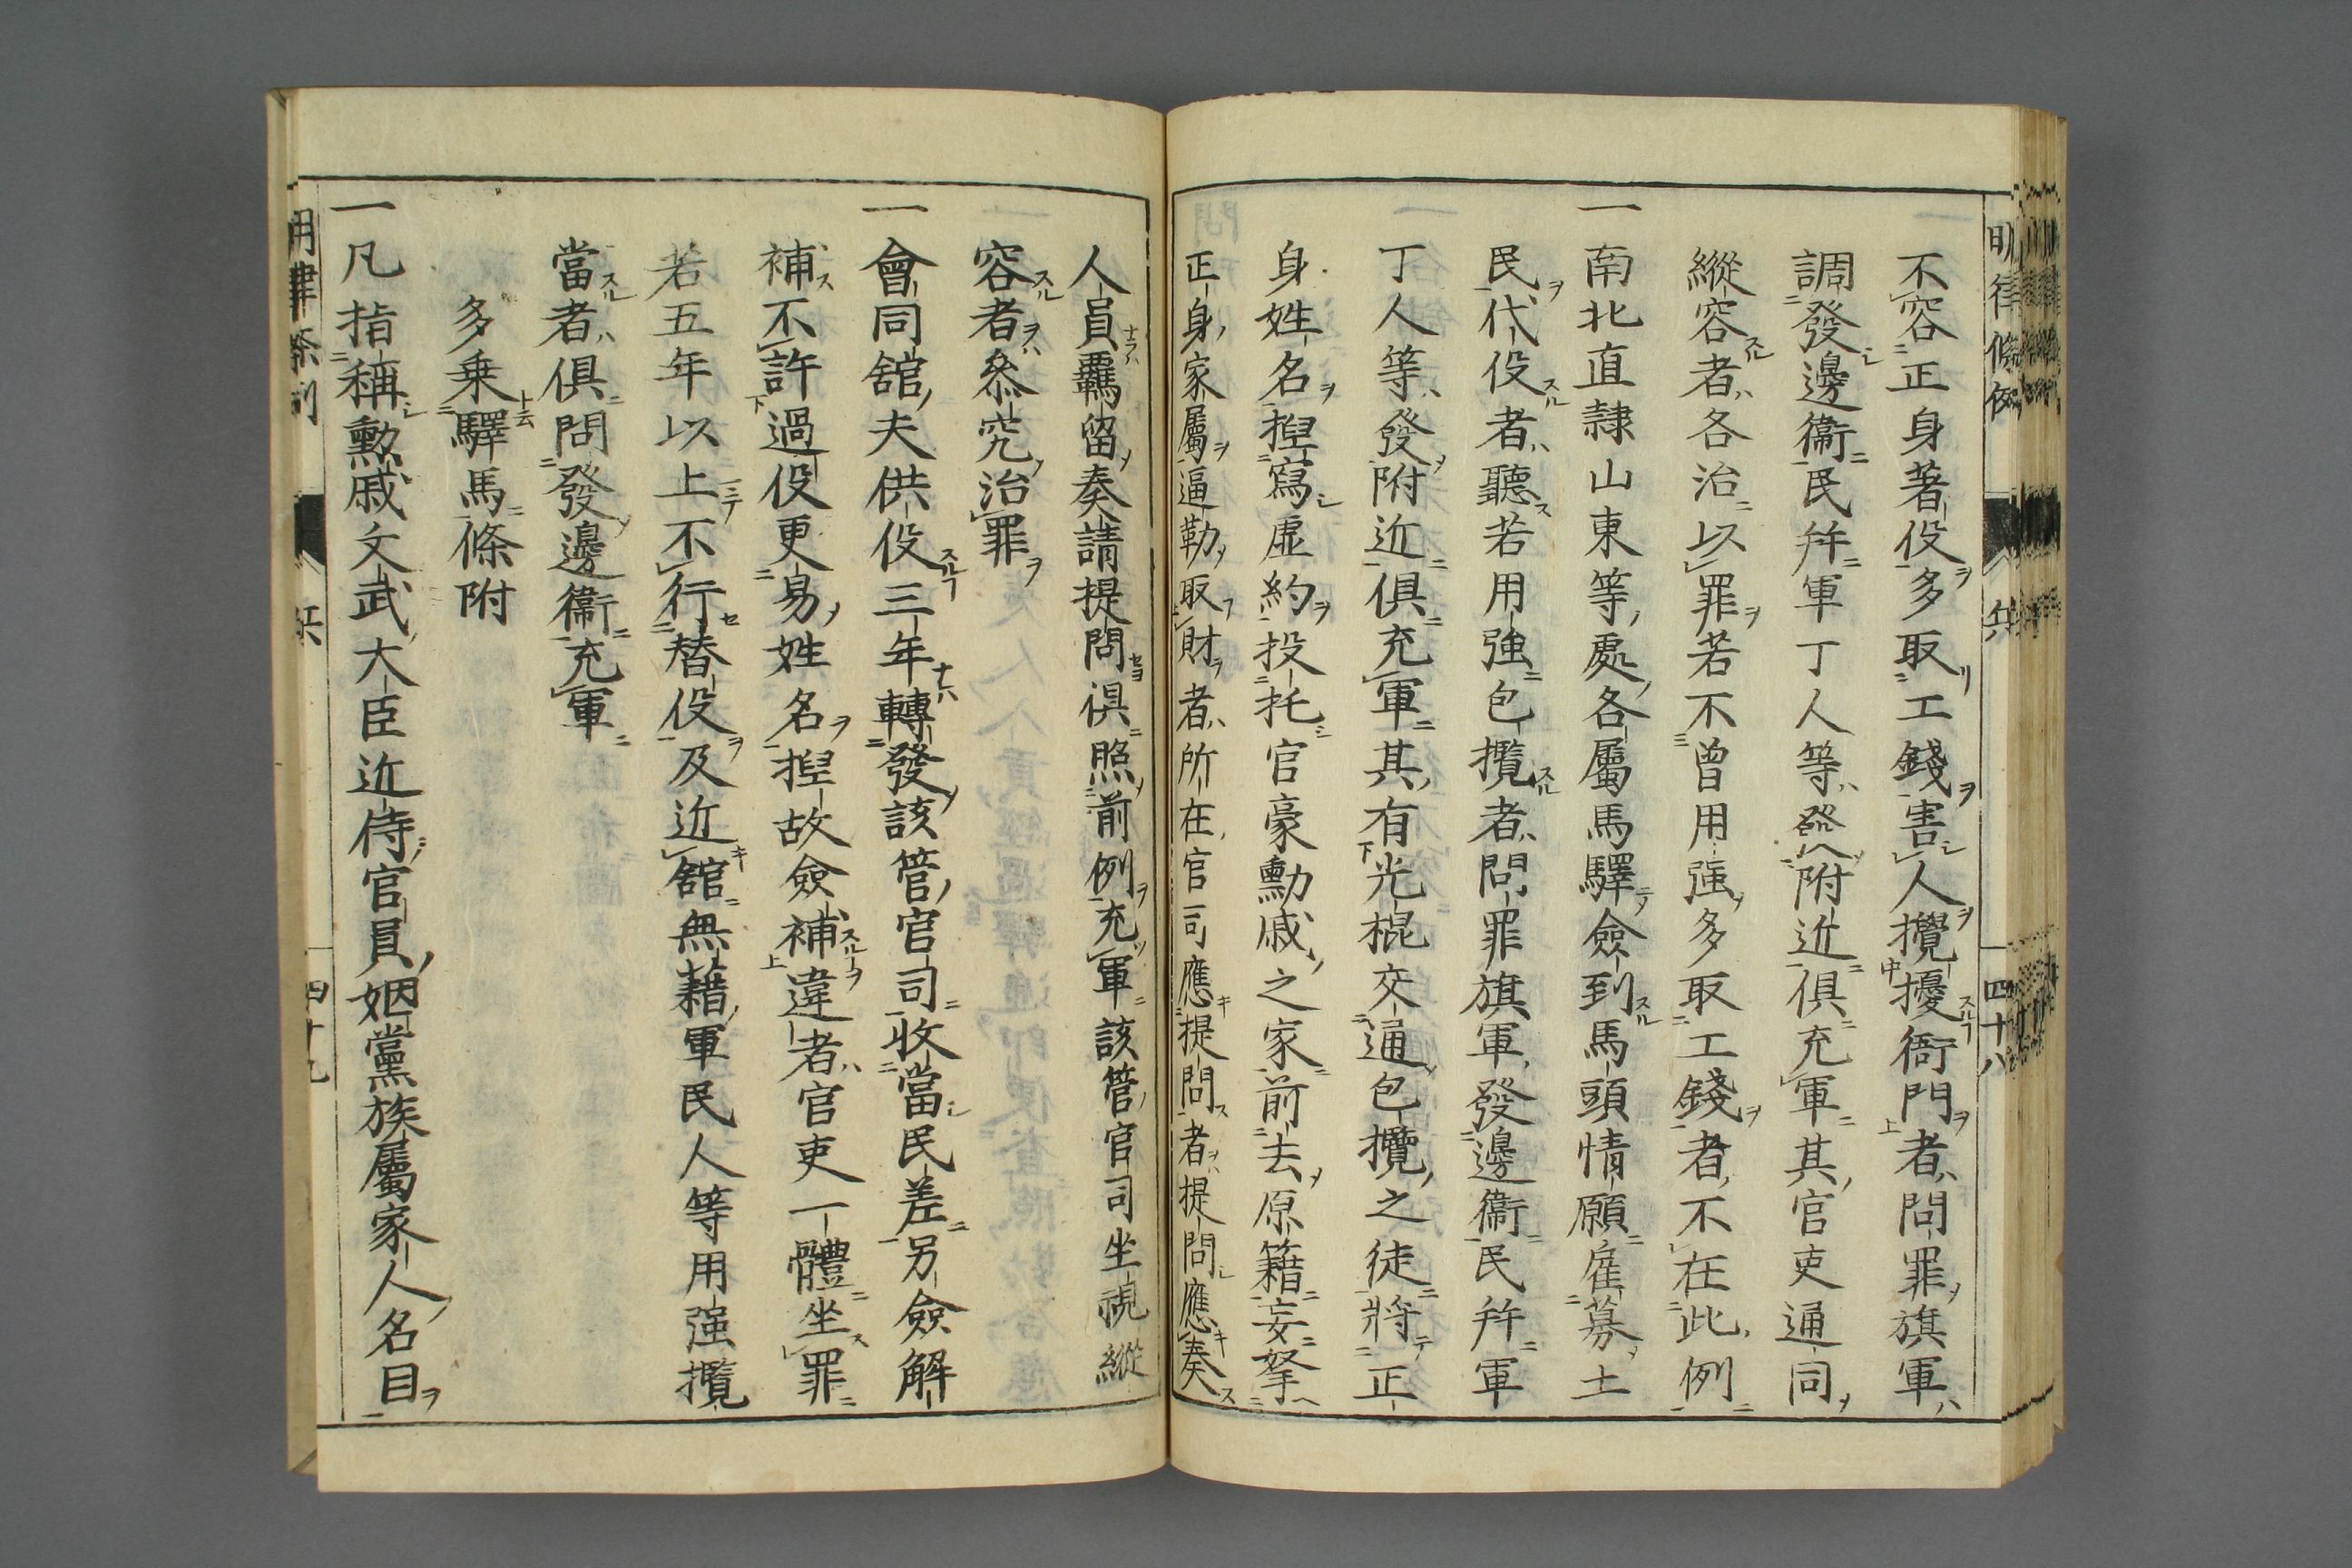 明律條例　兵　四十八
不容正身著役多取工錢害人攪擾衙門者問罪旗軍
調發邊衞民幷軍丁人等發附近俱充軍其官吏通同
縱容者各治以罪若不曾用强多取工錢者不在此例
一南北直隷山東等處各屬馬驛僉到馬頭情願雇募土
民代役者聽若用強包攬者問罪旗軍發邊衞民幷軍
丁人等發附近俱充軍其有光棍交通包攬之徒將正
身姓名揑寫虛約投托官豪勳戚之家前去原籍妄拏
正身家屬逼勒取財者所在官司應提問者提問應奏
人員羈留奏請提問俱照前例充軍該管官司坐視縱
容者叅究治罪
一會同舘夫供役三年轉發該管官司收當民差另僉解
補不許過役更易姓名揑故僉補違者官吏一體坐罪
若五年以上不行替役及近舘無藉軍民人等用强攬
當者俱問發邊衞充軍
多乗驛馬條附
一凡指稱勳戚文武大臣近侍官員姻黨族屬家人名目
四十九